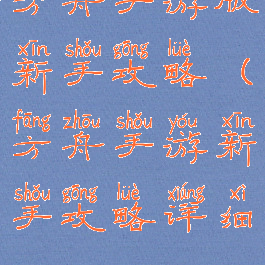 方舟手游版
xīn shǒu gōng lüè
新手攻略（
fāng zhōu shǒu yóu xīn
方舟手游新
shǒu gōng lüè xiáng xì
手攻略详细